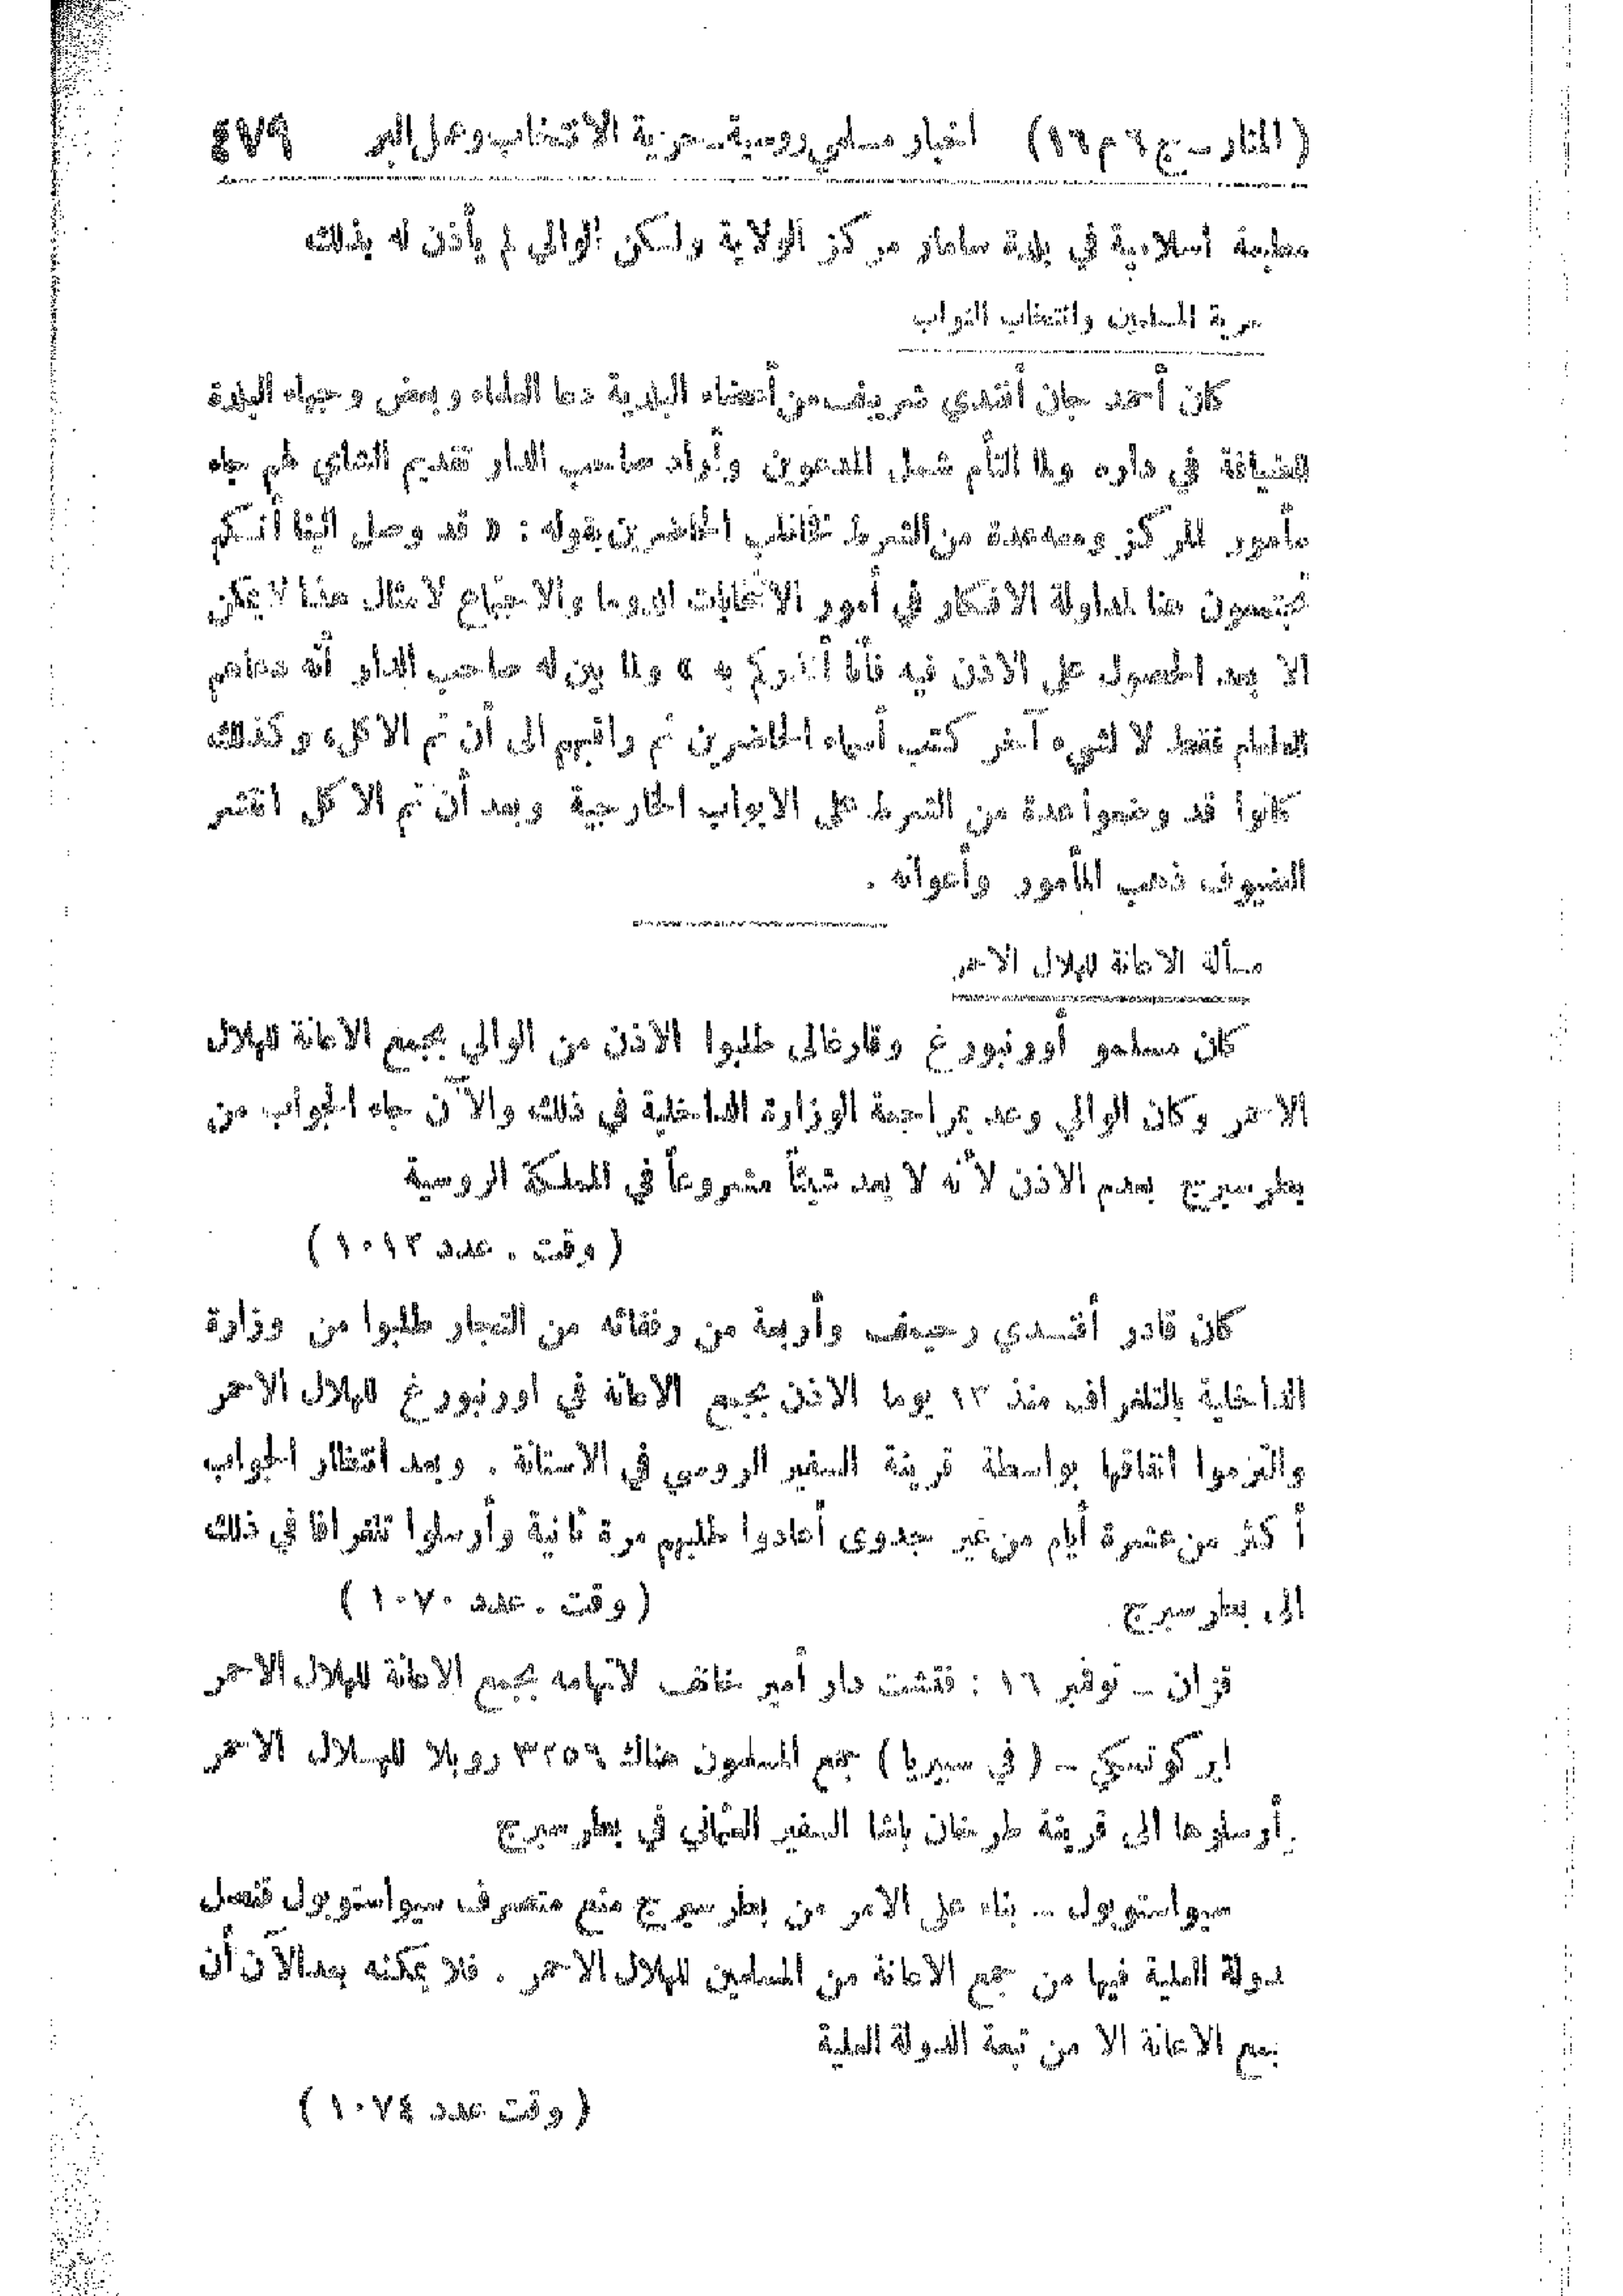 ( المنار – ج ٦ م ١٦ ) اخبار مسلمي روسية – حرية الانتخاب وعمل البر ٤٧٩
مطبعة اسلامية في بلدة سامار مركز الولاية ولكن الوالي لم يأذن له بذلك
حرية المسلمين وانتخاب النواب
كان أحمد جان أفندي شريف من أعضاء البلدية دعا العلماء وبعض وجهاء البلدة
للضيافة في داره ولما التأم شمل المدعوين وأراد صاحب الدار تقديم الشاي لهم جاء
مأمور المركز ومعه عدة من الشرط فخاطب الحاضرين بقوله : « قد وصل الينا أنكم
تجتمعون هنا لمداولة الافكار في أمور الانتخابات الدوما والاجتماع لامثال هذا لا يمكن
الا بعد الحصول على الاذن فيه فأنا أنذركم به » ولما بين له صاحب الدار أنه دعاهم
للطعام فقط لا لشيء آخر كتب أسماء الحاضرين ثم راقبهم الى أن تم الاكل، وكذلك
كانوا قد وضعوا عدة من الشرط على الابواب الخارجية وبعد أن تم الاكل انتشر
الضيوف ذهب المأمور وأعوانه .
مسألة الاعانة للهلال الاحمر
كان مسلمو أورنبورغ وقارغالى طلبوا الاذن من الوالي بجمع الاعانة للهلال
الاحمر وكان الوالي وعد بمراجعة الوزارة الداخلية في ذلك والآن جاء الجواب من
بطرسبرج بعدم الاذن لأنه لا يعد شيئاً مشروعاً في المملكة الروسية
( وقت . عدد ١٠١٣ )
كان قادر أفندي رحيموف وأربعة من رفقائه من التجار طلبوا من وزارة
الداخلية بالتلغراف منذ ١٣ يوما الاذن بجمع الاعانة في اورنبورغ للهلال الاحمر
والتزموا انفاقها بواسطة قرينة السفير الروسي في الاستانة . وبعد انتظار الجواب
أكثر من عشرة أيام من غير جدوى أعادوا طلبهم مرة ثانية وأرسلوا تلغرافا في ذلك
الى بطرسبرج ( وقت . عدد ١٠٧٠ )
قزان – نوفمبر ١٦ : فتشت دار أمير خانف لاتهامه بجمع الاعانة للهلال الاحمر
ايركوتسكي – ( في سيبريا ) جمع المسلمون هناك ٣٢٥٦ روبلا للهلال الاحمر
أرسلوها الى قرينة طرخان باشا السفير العثماني في بطرسبرج
سيواستوبول – بناء على الامر من بطرسبرج منع متصرف سيواستوبول قنصل
لدولة العلية فيها من جمع الاعانة من المسلمين للهلال الاحمر . فلا يمكنه بعد الآن أن
يجمع الاعانة الا من تبعة الدولة العلية
( وقت عدد ١٠٧٤ )